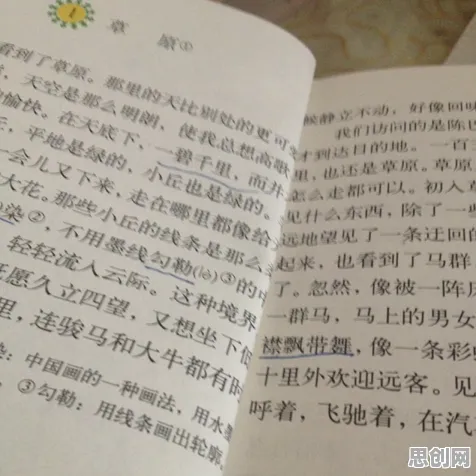 1
草 原①
看到了草原。那里的天比别处的更可
天空是那么明朗，使我总想高歌
愉快。在天底下，一碧千里，而并
平地是绿的，小丘也是绿的。
一会儿又下来，走在哪里都像给
大花。那些小丘的线条是那么
染②，不用墨线勾勒(lè)③的中
轻轻流入云际。这种境界
愿久立四望，又想坐下低
里，连骏马和大牛都有时
：中国画的一种画法，用水墨
③勾勒：用线条画出轮廓
候静立不动，好像回味
我们访问的是陈巴
才到达目的地。一百五
里，也还是草原。草原
怎么走都可以。初入草
见什么东西，除了一些
远地望见了一条迂回的
起来，也看到了马群
了。忽然，像被一阵风
一群马，马上的男女
襟飘带舞，像一条彩
十里外欢迎远客。见
呼着，飞驰着，在汽
思创网